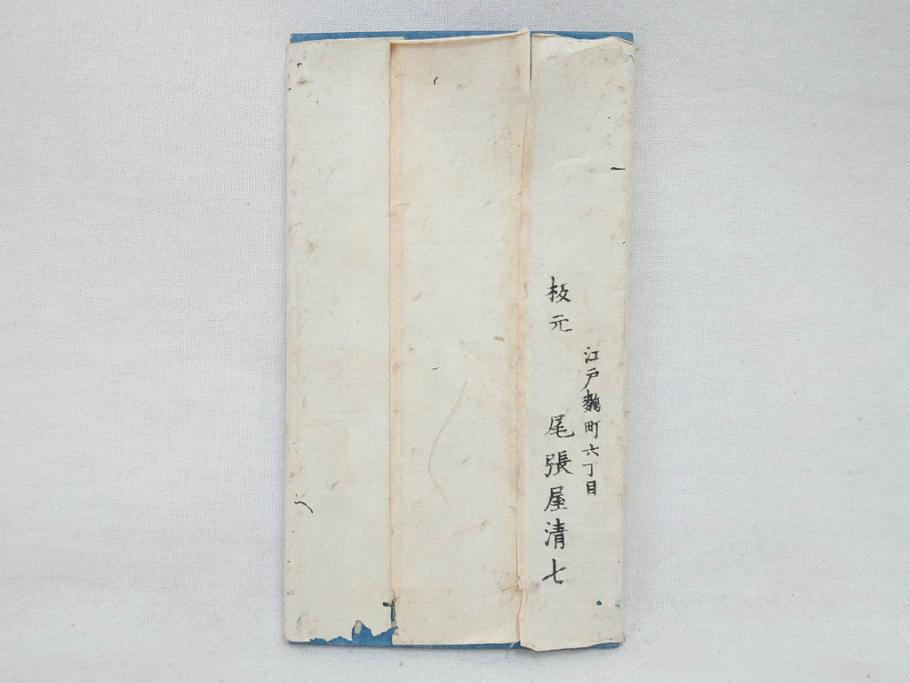 江戸麹町六丁目
板元 尾張屋清七